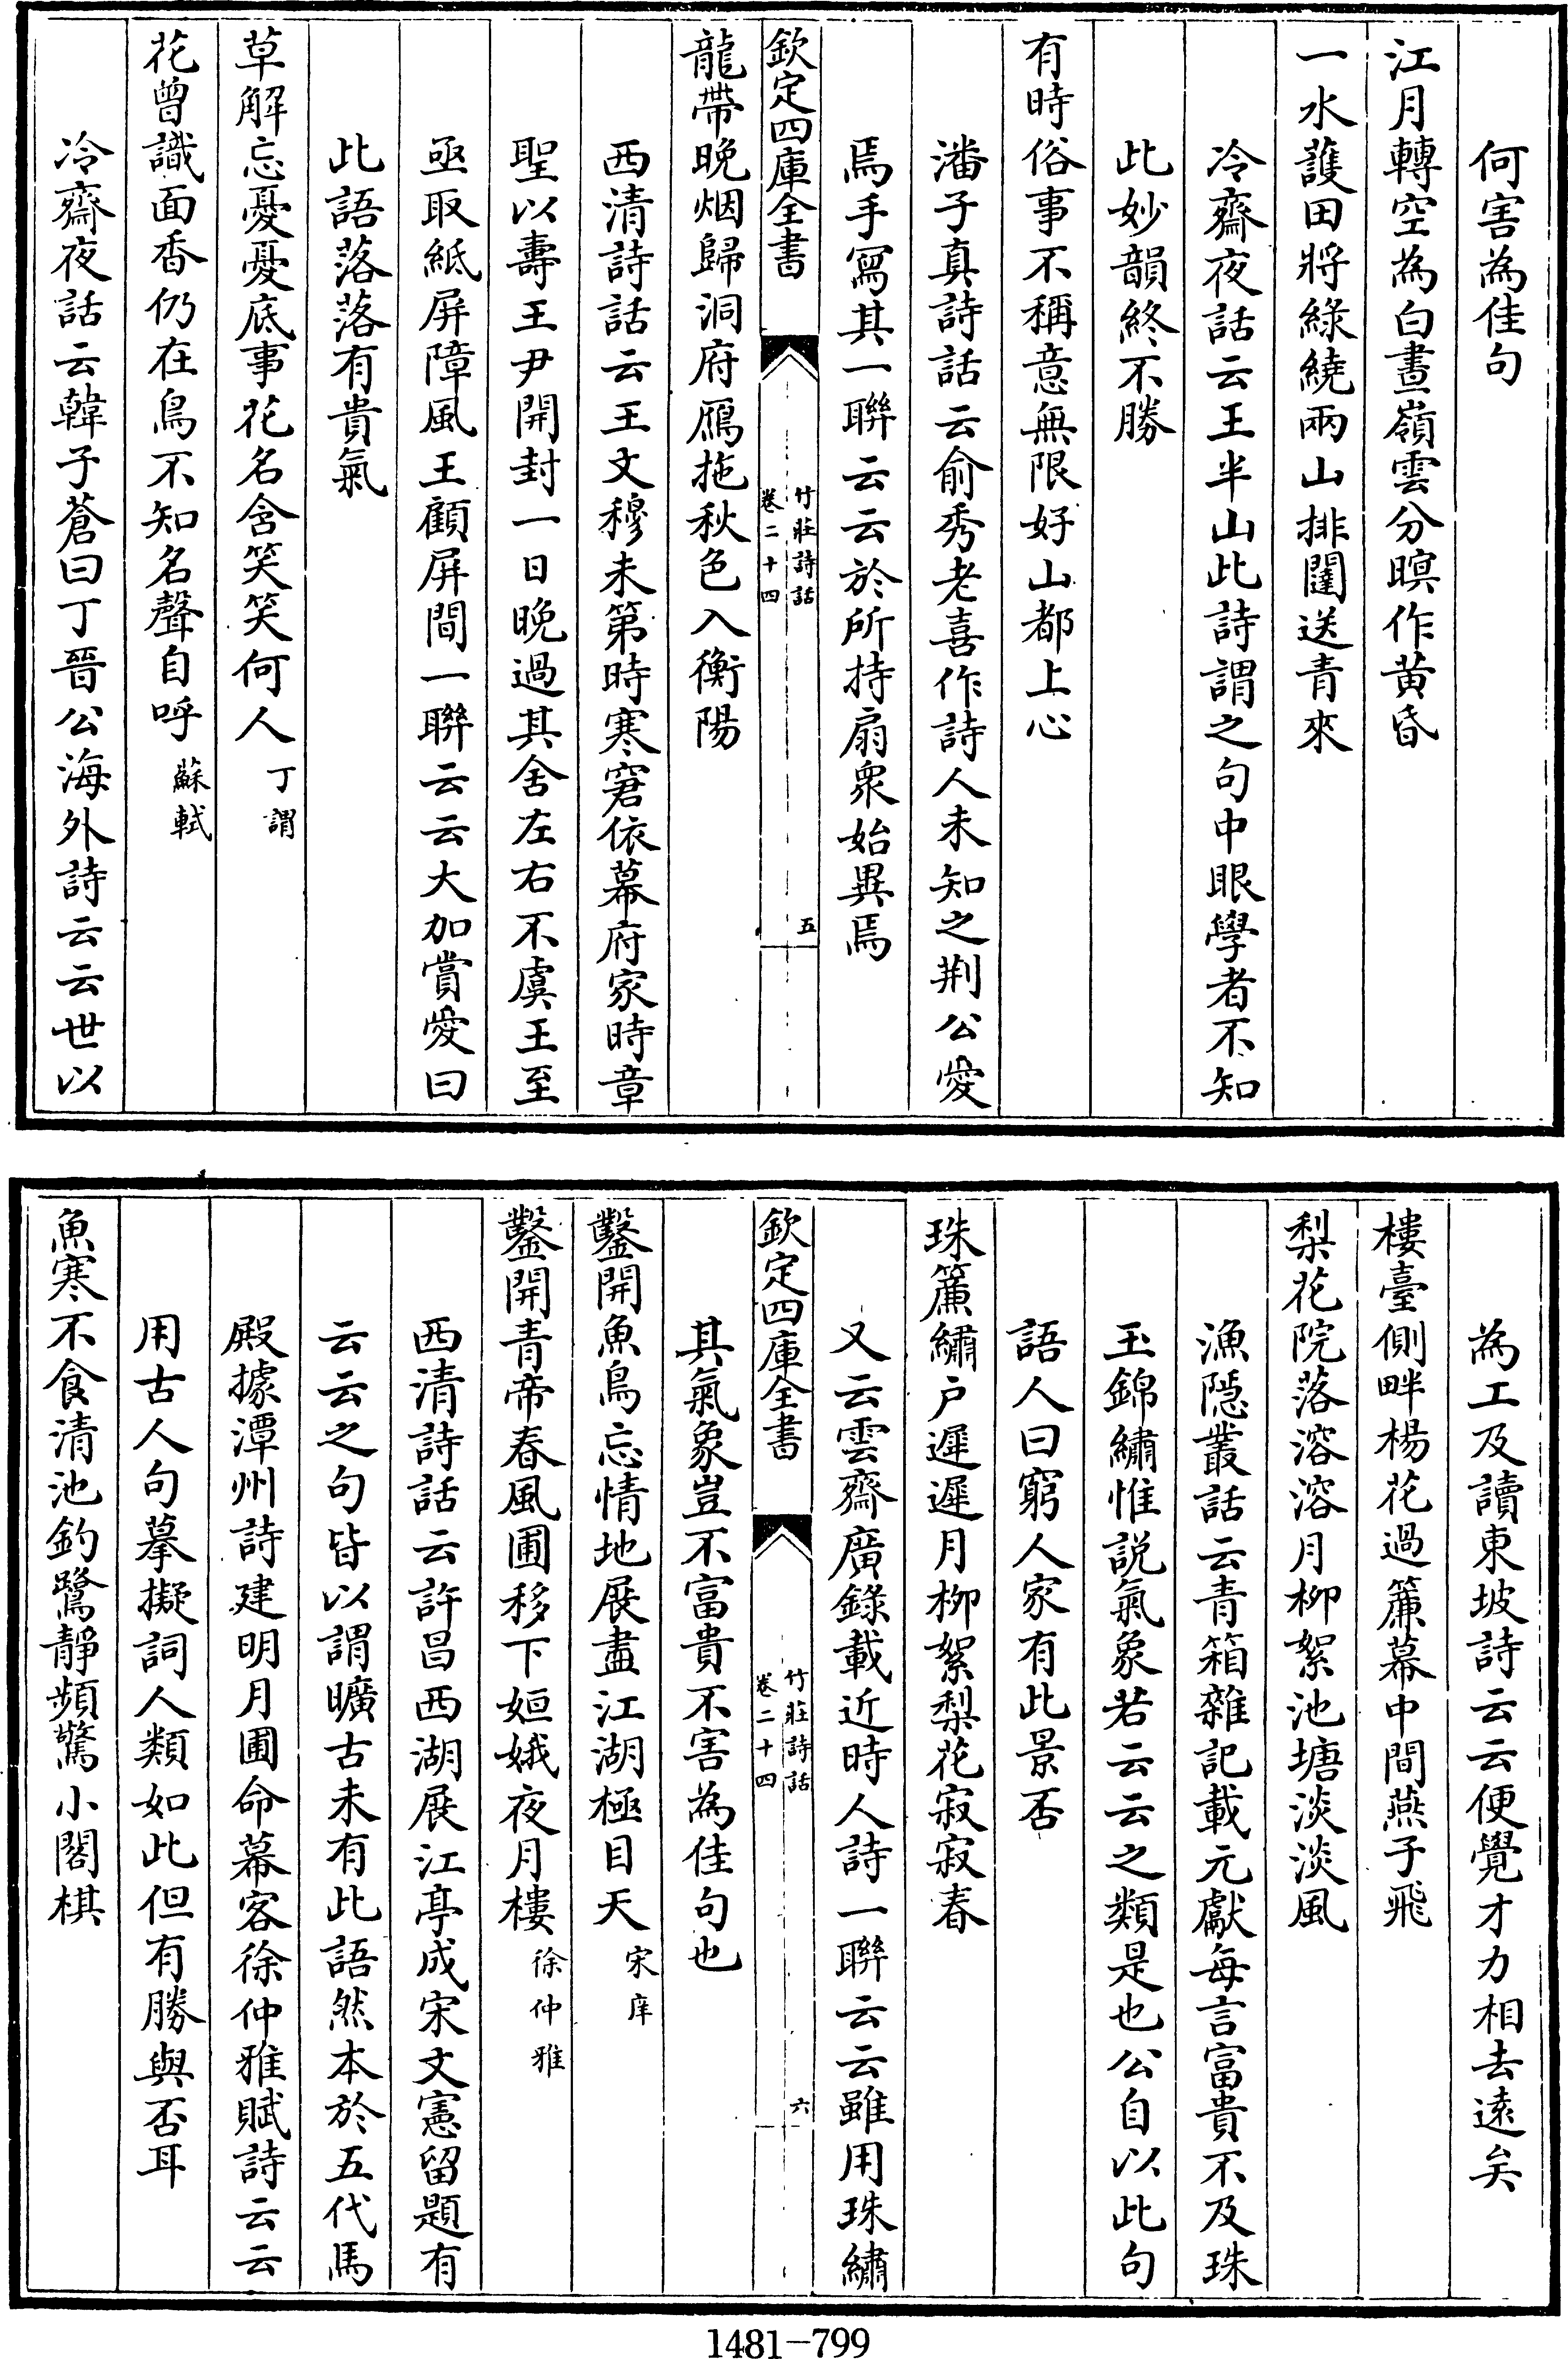 何害為佳句
江月轉空為白晝嶺雲分暝作黃昏
一水護田將綠繞兩山排闥送青來
冷齋夜話云王半山此詩謂之句中眼學者不知
此妙韻終不勝
有時俗事不稱意無限好山都上心
潘子真詩話云俞秀老喜作詩人未知之荆公愛
焉手寫其一聯云云於所持扇衆始異焉
欽定四庫全書
竹莊詩話
卷二十四
五
龍帶晚烟歸洞府鴈拖秋色入衡陽
西清詩話云王文穆未第時寒窘依幕府家時章
聖以壽王尹開封一日晚過其舍左右不虞王至
亟取紙屏障風王顧屏間一聯云云大加賞愛曰
此語落落有貴氣
草解忘憂憂底事花名含笑笑何人 丁謂
花曾識面香仍在鳥不知名聲自呼 蘇軾
冷齋夜話云韓子蒼曰丁晉公海外詩云云世以
為工及讀東坡詩云云便覺才力相去遠矣
樓臺側畔楊花過簾幕中間燕子飛
梨花院落溶溶月柳絮池塘淡淡風
漁隱叢話云青箱雜記載元獻每言富貴不及珠
玉錦繡惟説氣象若云云之類是也公自以此句
語人曰窮人家有此景否
珠簾繡户遲遲月柳絮梨花寂寂春
又云雲齋廣錄載近時人詩一聯云云雖用珠繡
欽定四庫全書
竹莊詩話
卷二十四
六
其氣象豈不富貴不害為佳句也
鑿開魚鳥忘情地展盡江湖極目天 宋庠
鑿開青帝春風圃移下姮娥夜月樓 徐仲雅
西清詩話云許昌西湖展江亭成宋文憲留題有
云云之句皆以謂曠古未有此語然本於五代馬
殷據潭州詩建明月圃命幕客徐仲雅賦詩云云
用古人句摹擬詞人類如此但有勝與否耳
魚寒不食清池釣鷺靜頻驚小閣棋
1481-799